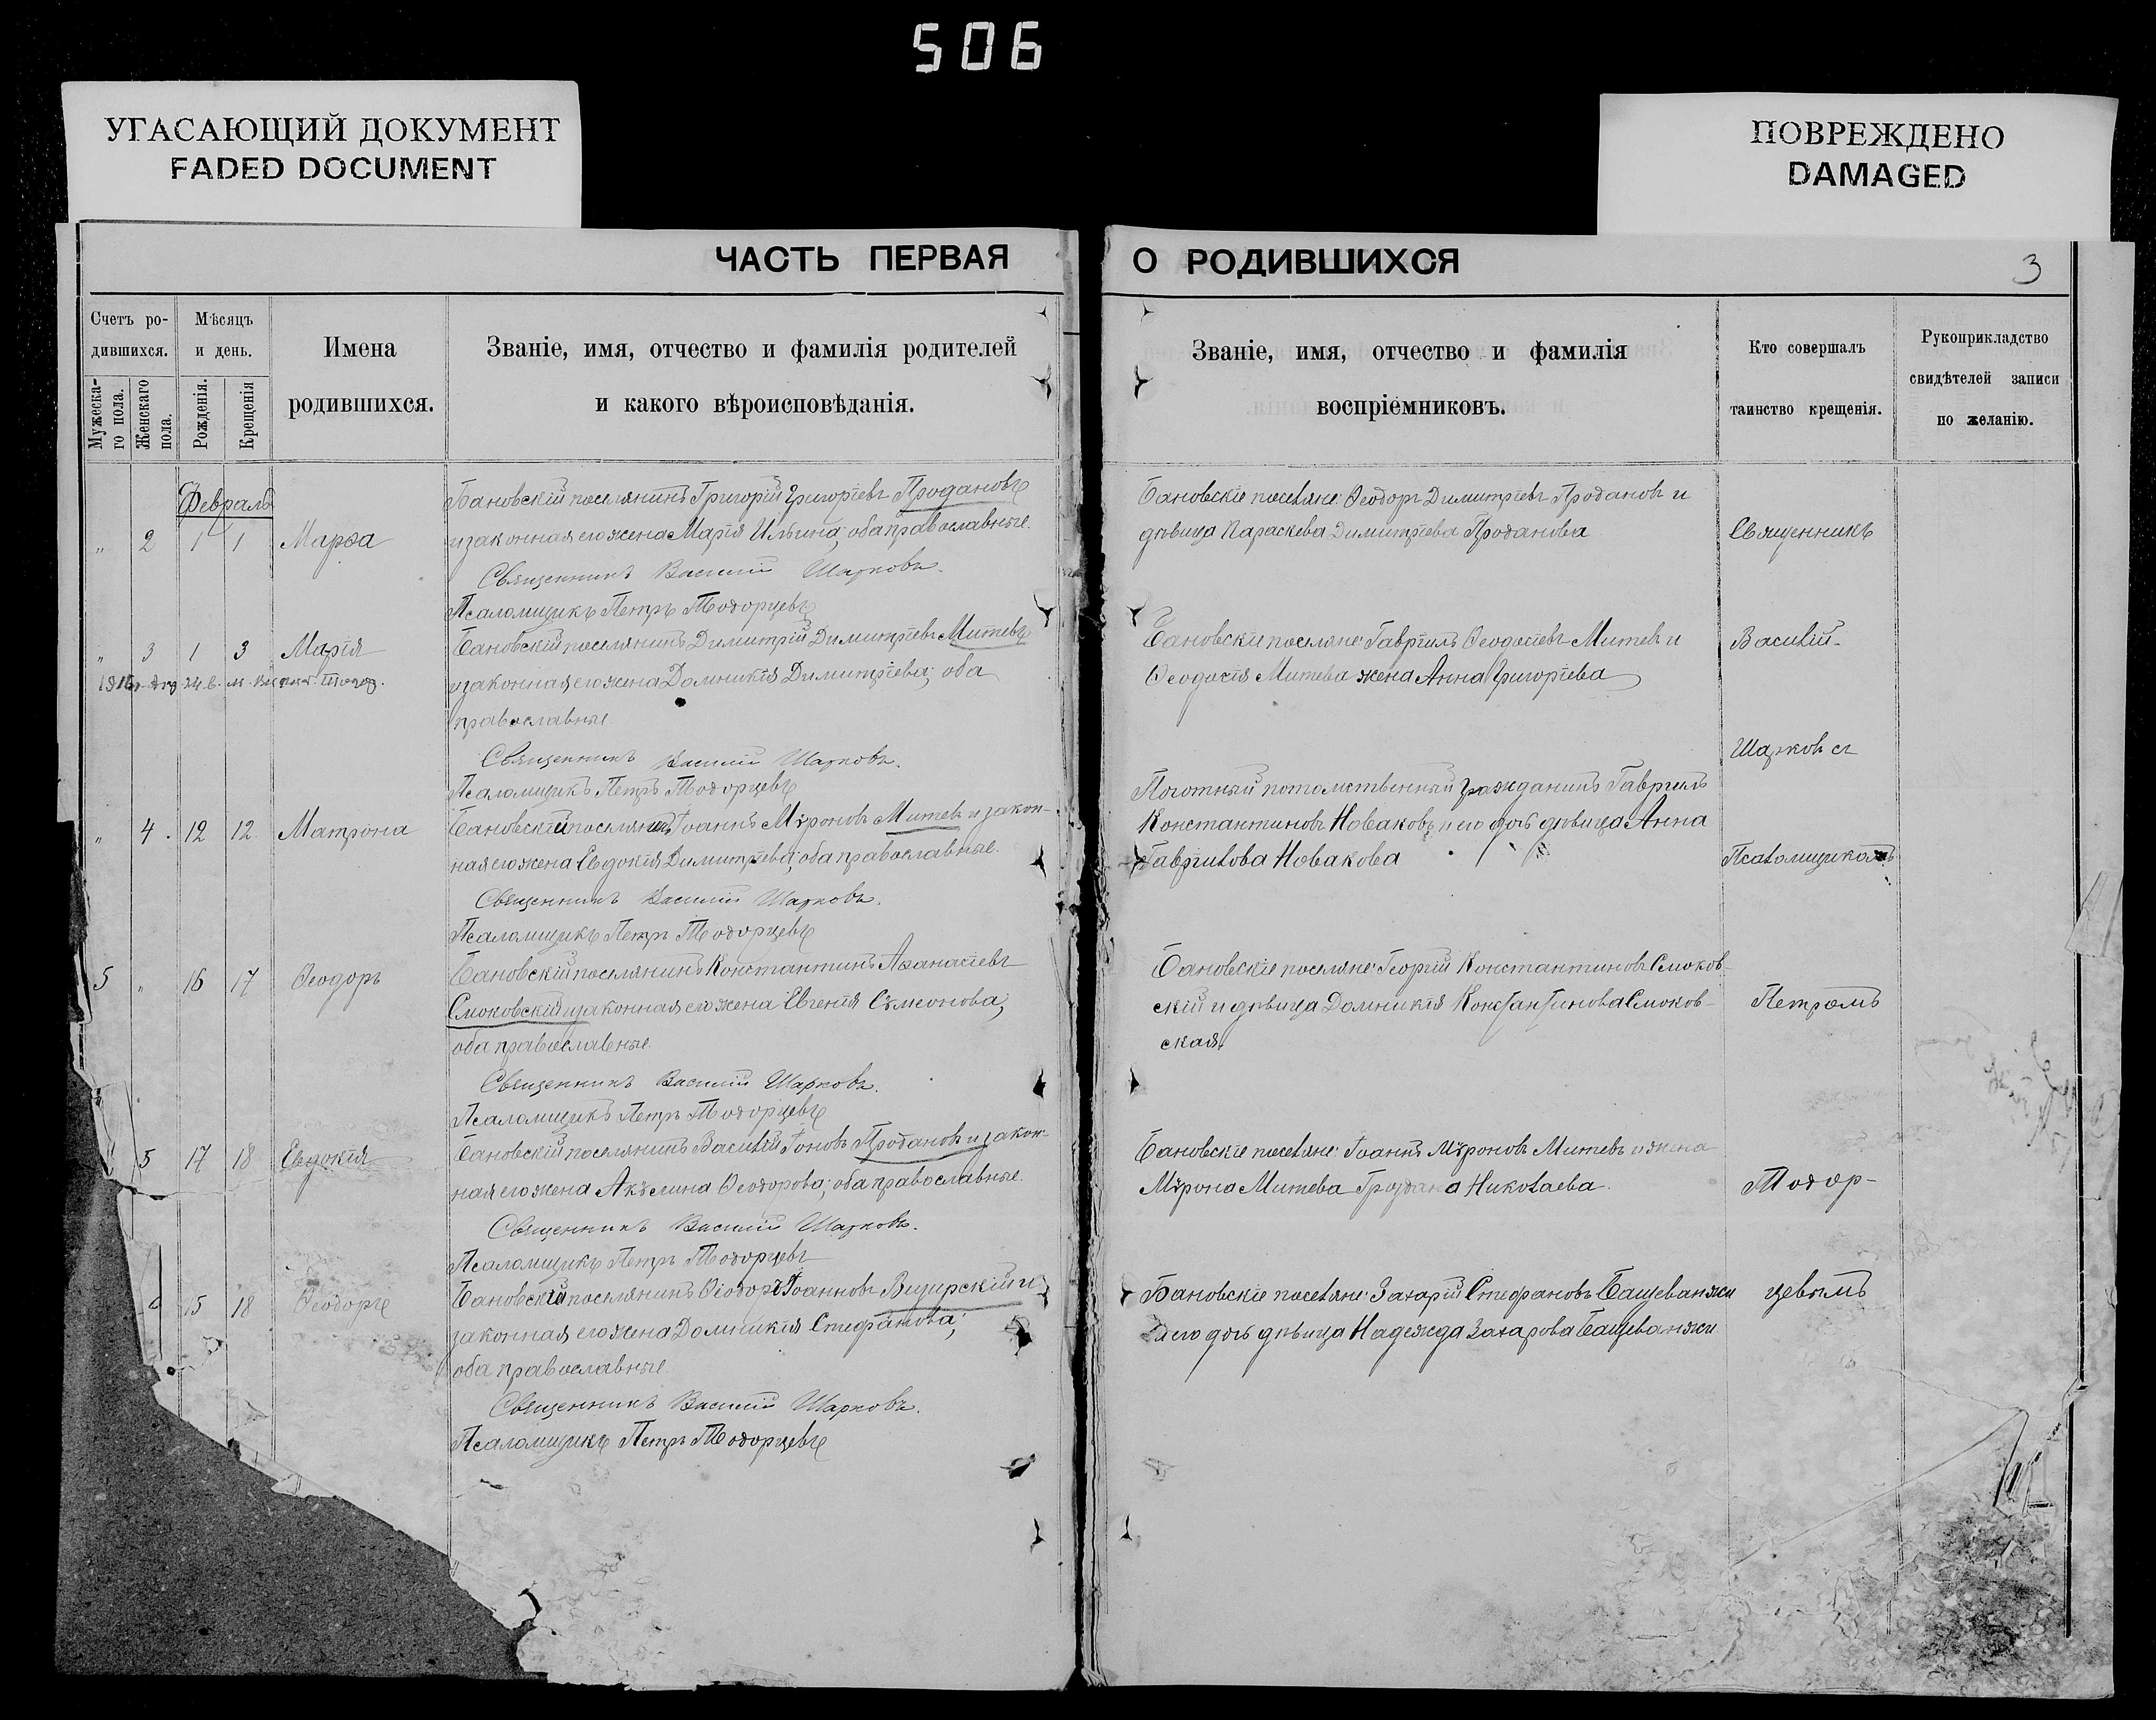 506
УГАСАЮЩИЙ ДОКУМЕНТ
FADED DOCUMENT
ПОВРЕЖДЕНО
DAMAGED
ЧАСТЬ ПЕРВАЯ
О РОДИВШИХСЯ
3
Счетъ ро-
дившихся.
Мужеска-
го пола.
Женскаго
пола.
Мѣсяцъ
и день.
Рожденія.
Крещенія
Имена
родившихся.
Званіе, имя, отчество и фамилія родителей
и какого вѣроисповѣданія.
Званіе, имя, отчество и фамилія
воспріемниковъ.
Кто совершалъ
таинство крещенія.
Рукоприкладство
свидѣтелей записи
по желанію.
Февраль
Бановскій поселянинъ Григорій Григоріевъ Продановъ
„ 2 1 1 Марѳа
и законная его жена Марія Ильина; оба православные.
Священникъ Василій Шарковъ.
Псаломщикъ Петръ Тодорцевъ
Бановскіе поселяне: Ѳеодоръ Димитріевъ Продановъ и
дѣвица Параскева Димитріева Проданова
Священникъ
„ 3 1 3 Марія
Бановскій поселянинъ Димитрій Димитріевъ Митевъ
и законная его жена Домникія Димитріева; оба
православные
Священникъ Василій Шарковъ.
Псаломщикъ Петръ Тодорцевъ
Бановскіе поселяне: Гавріилъ Ѳеодосіевъ Митевъ и
Ѳеодосія Митева жена Анна Григоріева
Василій
Шарковъ съ
„ 4. 12 12 Матрона
Бановскій поселянинъ Іоаннъ Мѵроновъ Митевъ и закон-
ная его жена Евдокія Димитріева; оба православные.
Священникъ Василій Шарковъ.
Псаломщикъ Петръ Тодорцевъ
Почотный потомственный гражданинъ Гавріилъ
Константиновъ Новаковъ и его дочь дѣвица Анна
Гавріилова Новакова
Псаломщикомъ
5 „ 16 17 Ѳеодоръ
Бановскій поселянинъ Константинъ Аѳанасіевъ
Смоковскій и законная его жена Евгенія Сѵмеонова;
оба православные.
Священникъ Василій Шарковъ.
Псаломщикъ Петръ Тодорцевъ
Бановскіе поселяне: Георгій Константиновъ Смоков-
скій и дѣвица Домникія Константинова Смоков-
ская.
Петромъ
5 17 18 Евдокія
Бановскій поселянинъ Василій Іоновъ Продановъ и закон-
ная его жена Акѵлина Ѳеодорова; оба православные.
Священникъ Василій Шарковъ.
Псаломщикъ Петръ Тодорцевъ
Бановскіе поселяне: Іоаннъ Мѵроновъ Митевъ и жена
Мѵрона Митева Гроздана Николаева.
Тодор-
6 15 18
Бановскій поселянинъ Ѳеодоръ Іоанновъ Визирскій и
законная его жена Домникія Стефанова;
оба православные.
Священникъ Василій Шарковъ.
Псаломщикъ Петръ Тодорцевъ
Бановскіе поселяне: Захарій Стефановъ Бащеванжи
и его дочь дѣвица Надежда Захарова Бащеванжи
цевымъ